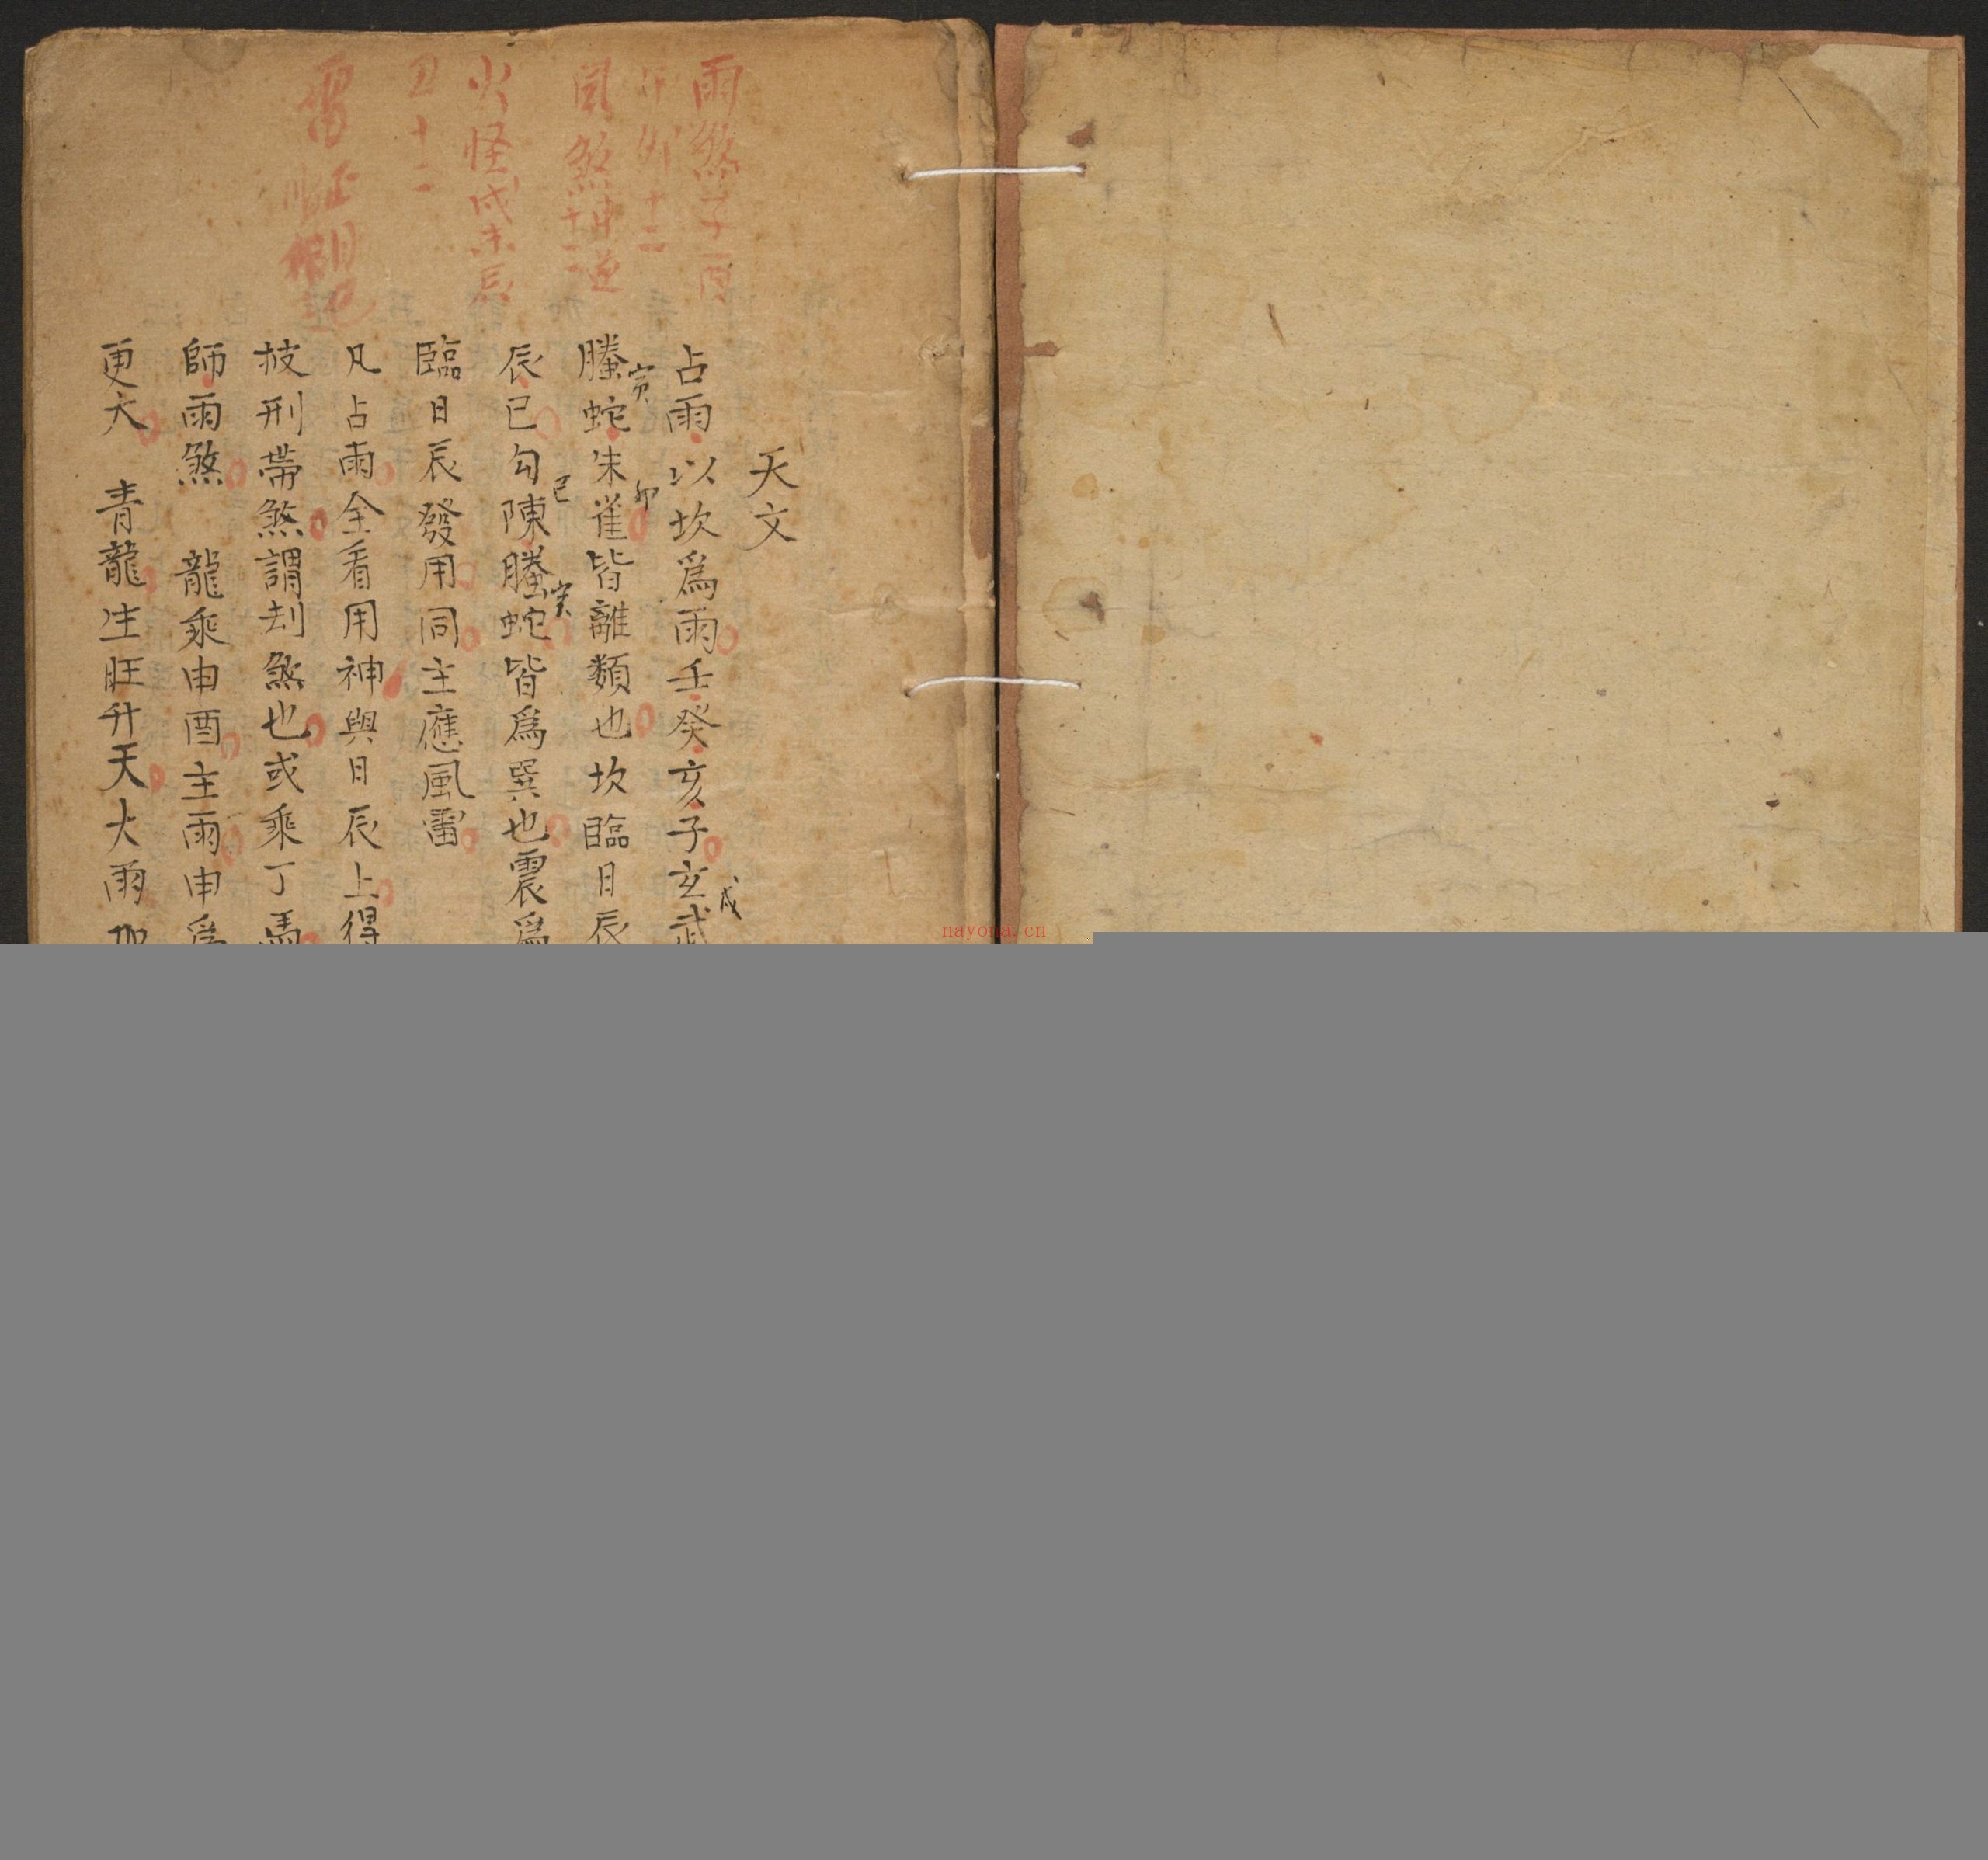 雨煞子酉
卯十二
風煞申逆
十二
火怪戌未辰
丑十二
天文
占雨以坎爲雨壬癸亥子玄武
戌
螣蛇朱雀皆離類也坎臨日辰
寅
卯
辰巳勾陳螣蛇皆爲巽也震爲
巳
寅
臨日辰發用同主應風雷
凡占雨全看用神與日辰上得
披刑帶煞謂刦煞也或乘丁馬
師雨煞 龍乘申酉主雨申爲
更大 青龍生旺升天大雨加
nayona.cn